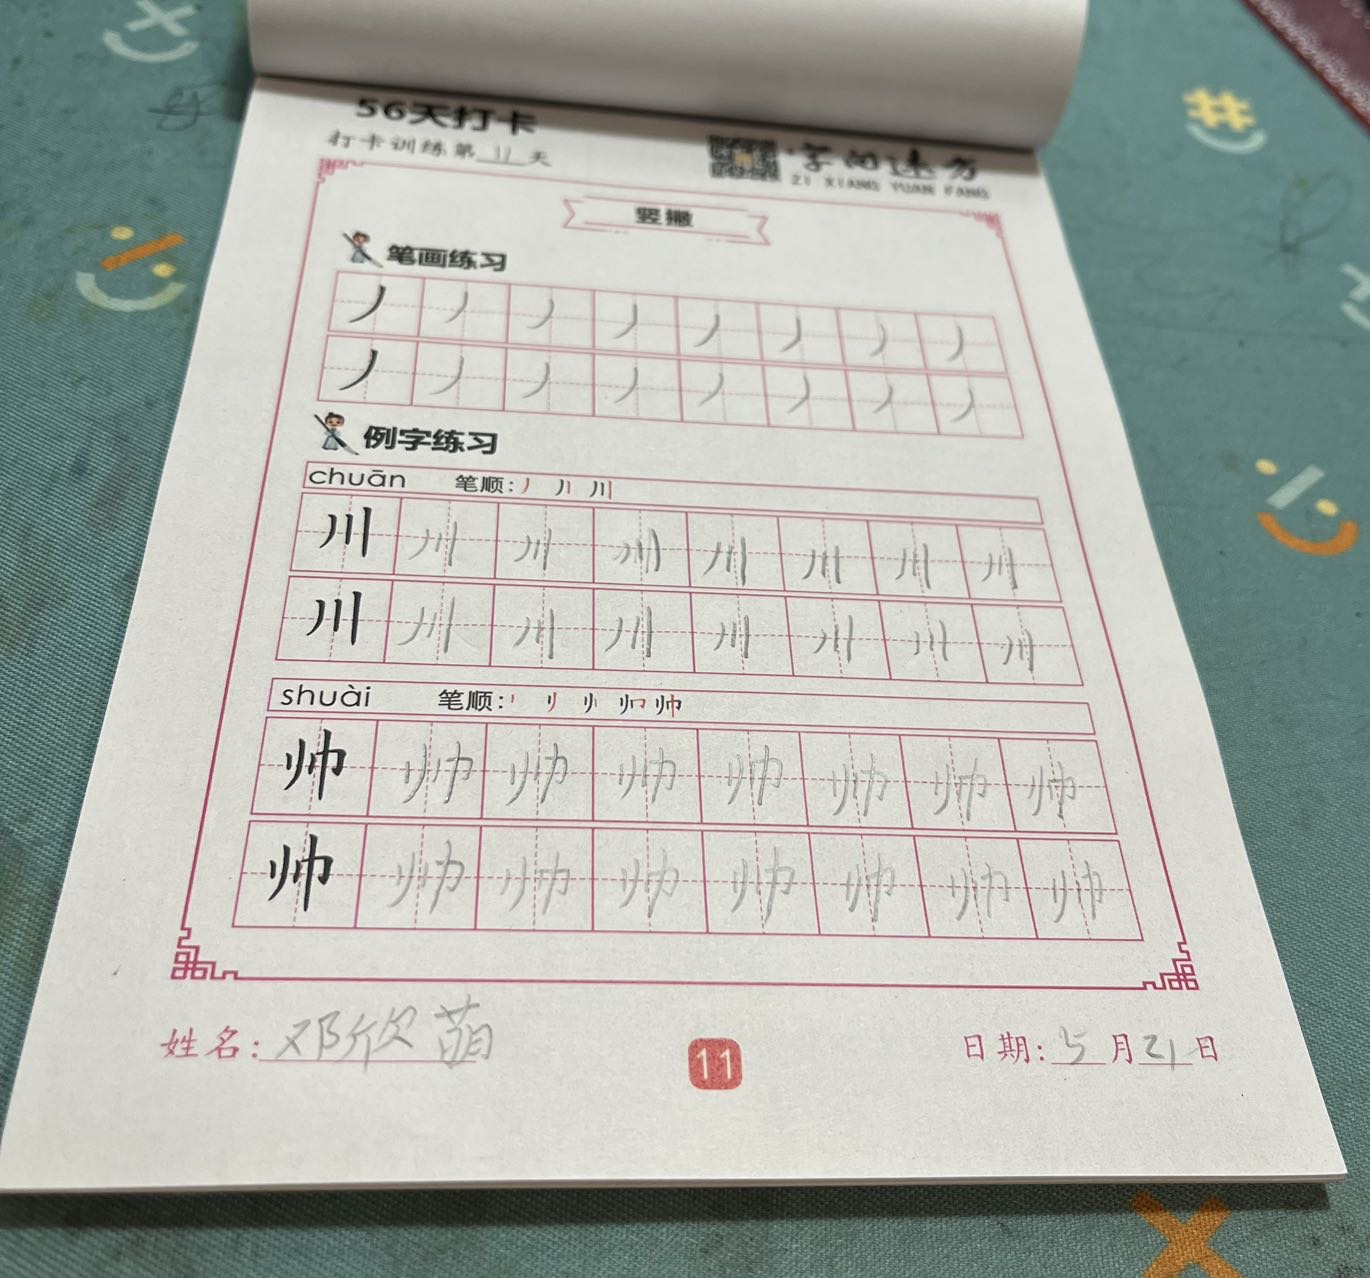 56天打卡
打卡训练第11天
字向远方
ZI XIANG YUAN FANG
竖撇
笔画练习
丿 丿 丿 丿 丿 丿 丿 丿
丿 丿 丿 丿 丿 丿 丿 丿
例字练习
chuān 笔顺: 丿 丿丨 川
川 川 川 川 川 川 川 川
川 川 川 川 川 川 川 川
shuài 笔顺: 帅
帅 帅 帅 帅 帅 帅 帅 帅
帅 帅 帅 帅 帅 帅 帅 帅
姓名: 邓欣萌
11
日期: 5月21日